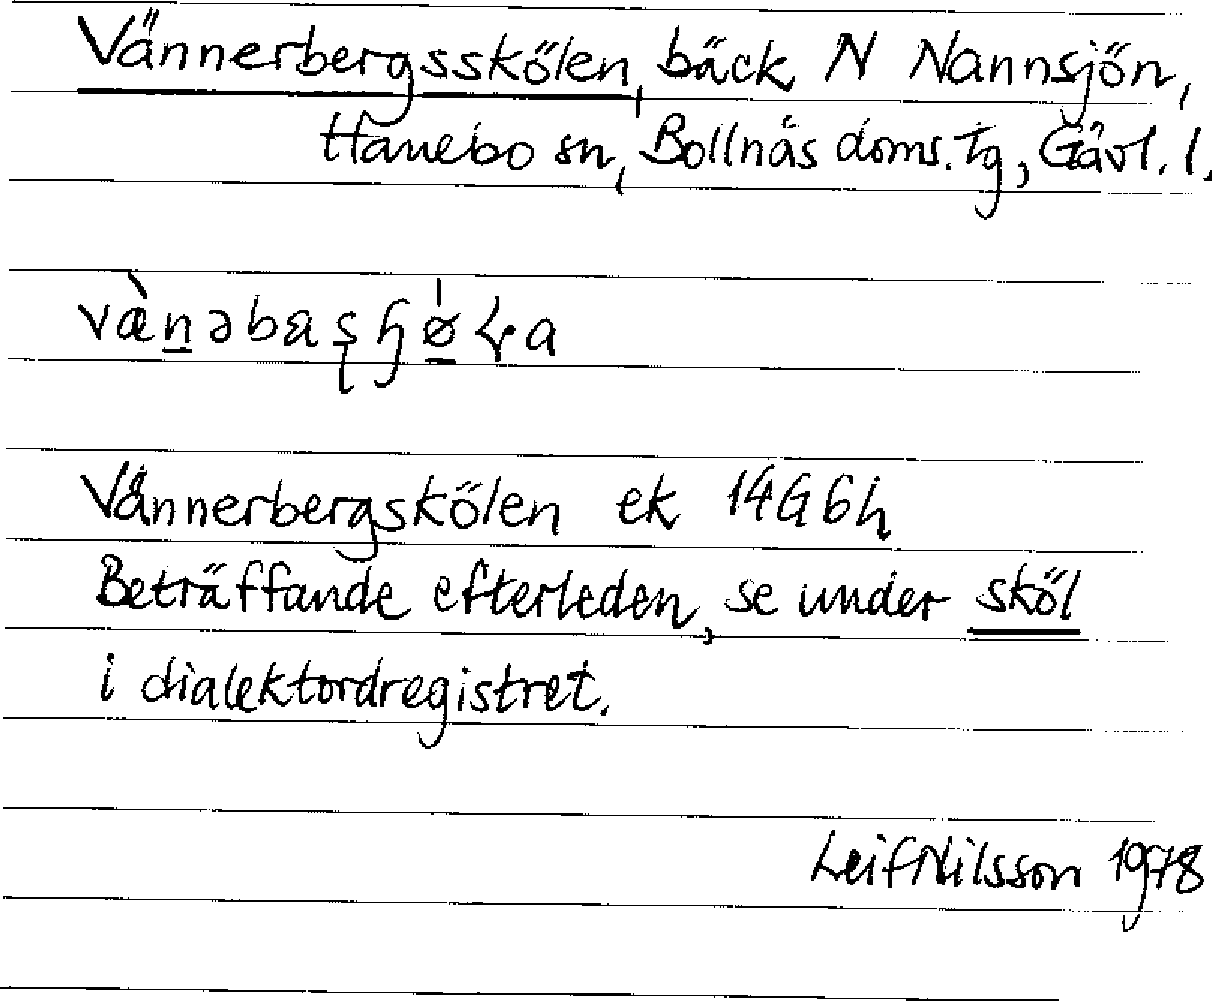 Vännerbergsskölen, bäck N Nannsjön,
Hanebo sn, Bollnäs doms. tg, Gävl. l.
Vännerbergskölen ek 14G6h
Beträffande efterleden, se under sköl
i dialektordregistret.
Leif Nilsson 1978